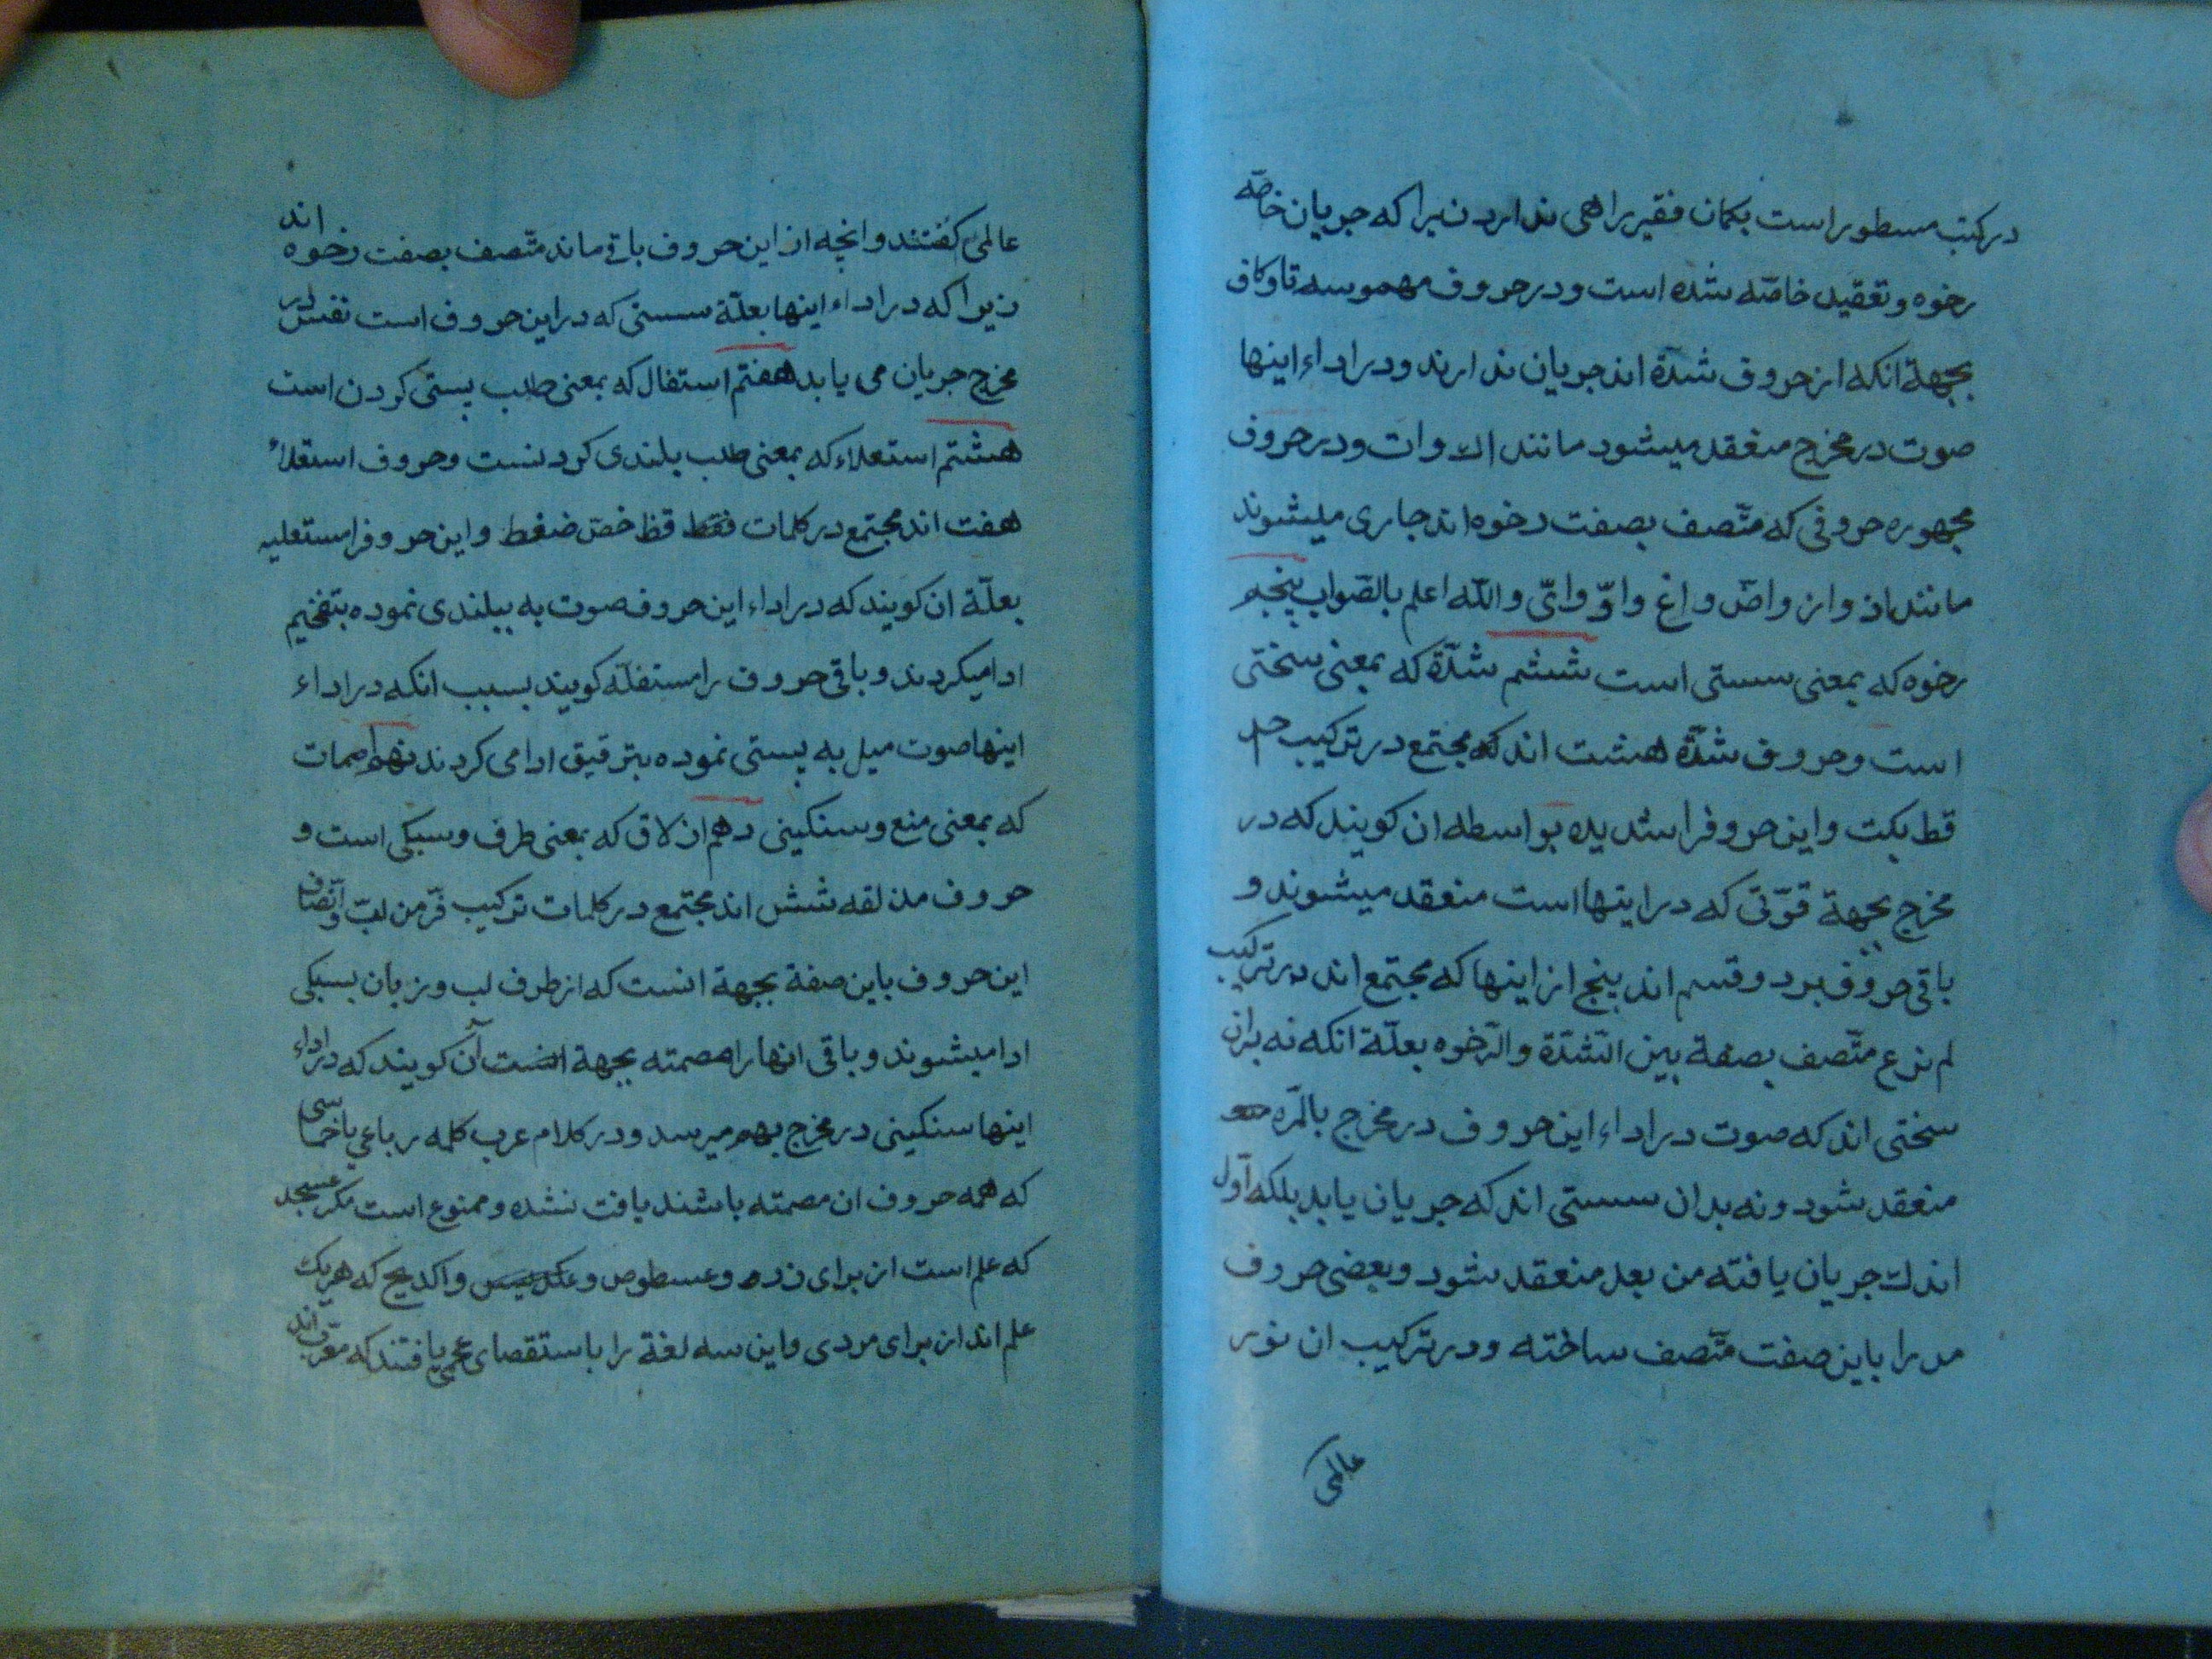 در کتب مسطور است بکمان فقیر راهی ندارد زیرا که جریان خاصّه
رخوه و تعقید خاصّه شده است و در حروف مهموسه تا و کاف
بجهة انکه از حروف شدّة اند جریان ندارند و در اداء اینها
صوت در مخرج منعقد میشود مانند اك و ات و در حروف
مجهوره حروفی که متّصف بصفت رخوه اند جاری میشوند
مانند اذ و از و اض و اغ و اوّ و ایّ و اللّه اعلم بالصّواب پنجم
رخوه که بمعنی سستی است ششم شدّة که بمعنی سختی
است و حروف شدّة هشت اند که مجتمع در ترکیب جد
قط بکت و این حروفرا شدیده بواسطه ان کویند که در
مخرج بجهة قوّتی که در اینها است منعقد میشوند و
باقی حروف بر دو قسم اند پنج از اینها که مجتمع اند در ترکیب
لم نرع متّصف بصفة بین الشّدّة و الرّخوه بعلّة انکه نه بدان
سختی اند که صوت در اداء این حروف در مخرج بالمرّه
منعقد شود و نه بدان سستی اند که جریان یابد بلکه اول
اندك جریان یافته من بعد منعقد شود و بعضی حروف
مد را باین صفت متّصف ساخته و در ترکیب ان نور
عالمی
عالمی کفتند و انچه از این حروف باقی ماند متّصف بصفت رخوه اند
زیرا که در اداء اینها بعلّة سستی که در این حروف است نفس در
مخرج جریان می یابد هفتم استفال که بمعنی طلب پستی کردن است
هشتم استعلاء که بمعنی طلب بلندی کردنست و حروف استعلاء
هفت اند مجتمع در کلمات فقط قظ خص ضغط و این حروفرا مستعلیه
بعلّة ان کویند که در اداء این حروف صوت به ببلندی نموده بتفخیم
ادا میکردند و باقی حروف را مستفلة کویند بسبب انکه در اداء
اینها صوت میل به پستی نموده بترقیق ادا می کردند نهم اصمات
که بمعنی منع و سنکینی دهم اذلاق که بمعنی طرف و سبکی است و
حروف مذلقه شش اند مجتمع در کلمات ترکیب فرّ من لبّ و اتّصاف
این حروف باین صفة بجهة انست که از طرف لب و زبان بسبکی
ادا میشوند و باقی انها را مصمته بجهة آن کویند که در اداء
اینها سنکینی در مخرج بهم میرسد و در کلام عرب کلمه رباعی یا خماسی
که همه حروف ان مصمته باشند یافت نشده و ممنوع است مکر عسجد
که علم است از برای زر و عسطوس و اکدیح که هر یك
علم اند از برای مردی و این سه لغة را باستقصای عجمی یافتند که معرّب اند